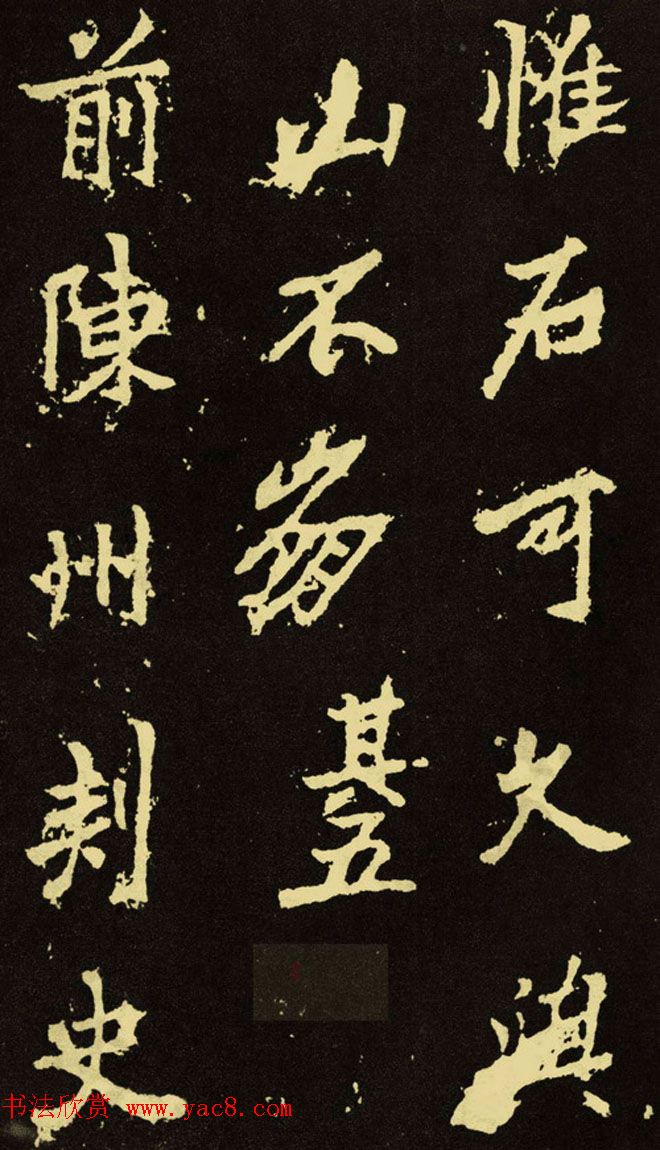 惟石可久與
山不崩其五
前陳州刺史
书法欣赏 www.yac8.com